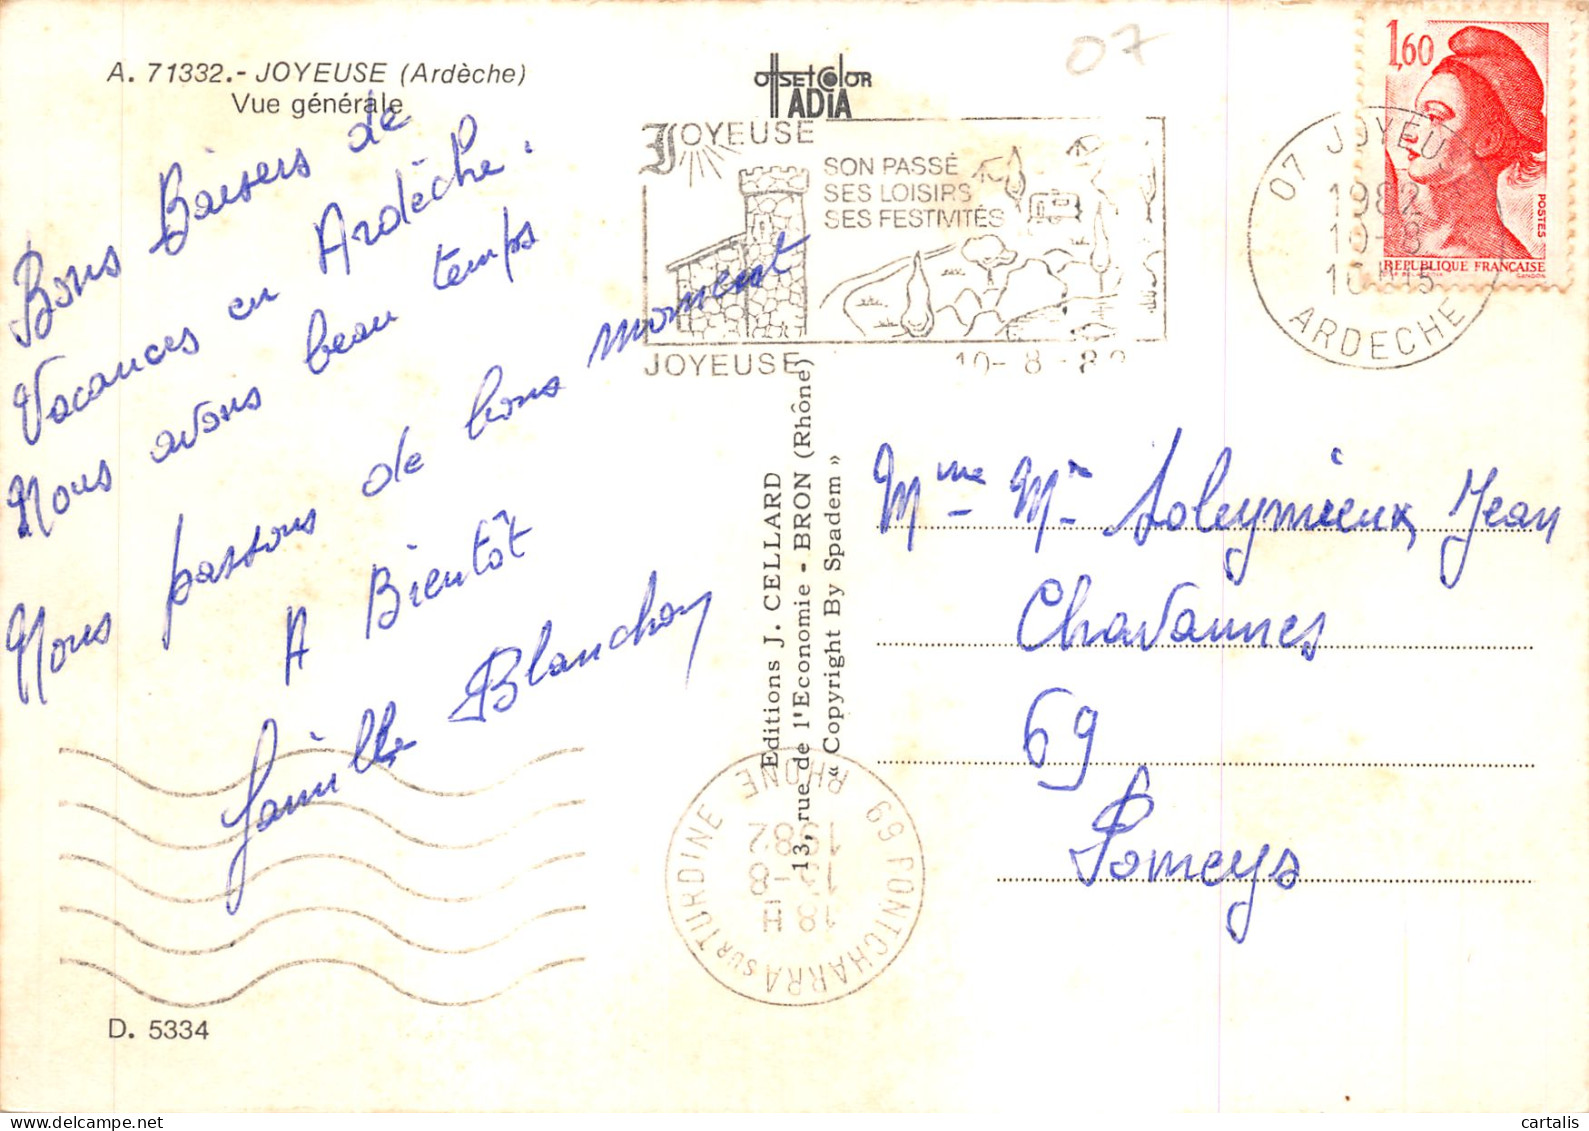 07
A. 71332.- JOYEUSE (Ardèche)
Vue générale
OffSEt COlOR
ADIA
1,60
POSTES
REPUBLIQUE FRANCAISE
GANDON
JOYEUSE
SON PASSÉ
SES LOISIRS
SES FESTIVITÉS
JOYEUSE
10-8-82
07 JOYEU
1982
10-8
ARDECHE
Bons Baisers de
Vacances en Ardèche.
Nous avons beau temps
Nous passons de bons moment
A Bientôt
famille Blanchon
Editions J. CELLARD
13, rue de l'Economie - BRON (Rhône)
« Copyright By Spadem »
Mme Mr Soleymieux Jean
Chavannes
69
Pomeys
69 PONTCHARRA SUR TURDINE
RHONE
18 H
12-8
1982
D. 5334
cartalis